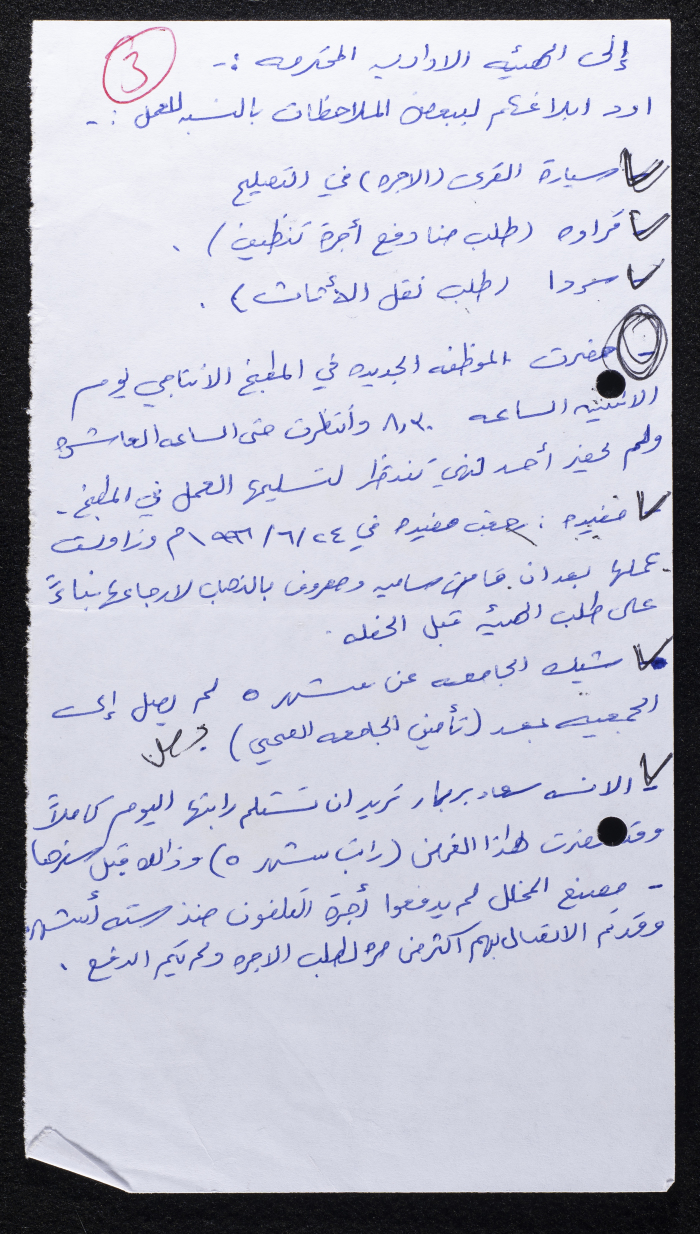 3
إلى الهيئه الاداريه المحترمه :-
اود ابلاغكم لببعض الملاحظات بالنسبه للعمل :-
سيارة القرى (الاجره) في التصليح
قراوه (طلب منا دفع أجرة تنظيف) .
سردا (طلب نقل الأثاث) .
- حضرت الموظفه الجديده في المطبخ الانتاجي يوم
الاثنين الساعه ٨,٣٠ وأنتظرت حتى الساعه العاشره
ولم يحضر أحد لتسليمها العمل في المطبخ -
مفيده : رجعت مفيده في ٢٤/٦/١٩٩٦م وزاولت
عملها بعد ان قامت ساميه ومعروف بالذهاب لارجاعها بناءً
على طلب الهيئه قبل الحفله .
شيك الجامعه عن شهر ٥ لم يصل إلى
الجمعيه بعد (تأمين الجامعه الصحي) وصل
- الانسه سعاد تريد ان تستلم راتبها اليوم كاملاً
وقد حضرت لهذا الغرض (راتب شهر ٥) وذالك قبل سفرها
- مصنع المخلل لم يدفعوا أجرة التلفون منذ سته أشهر
وقد تم الاتصال بهم اكثر من مره لطلب الاجره ولم يتم الدفع .